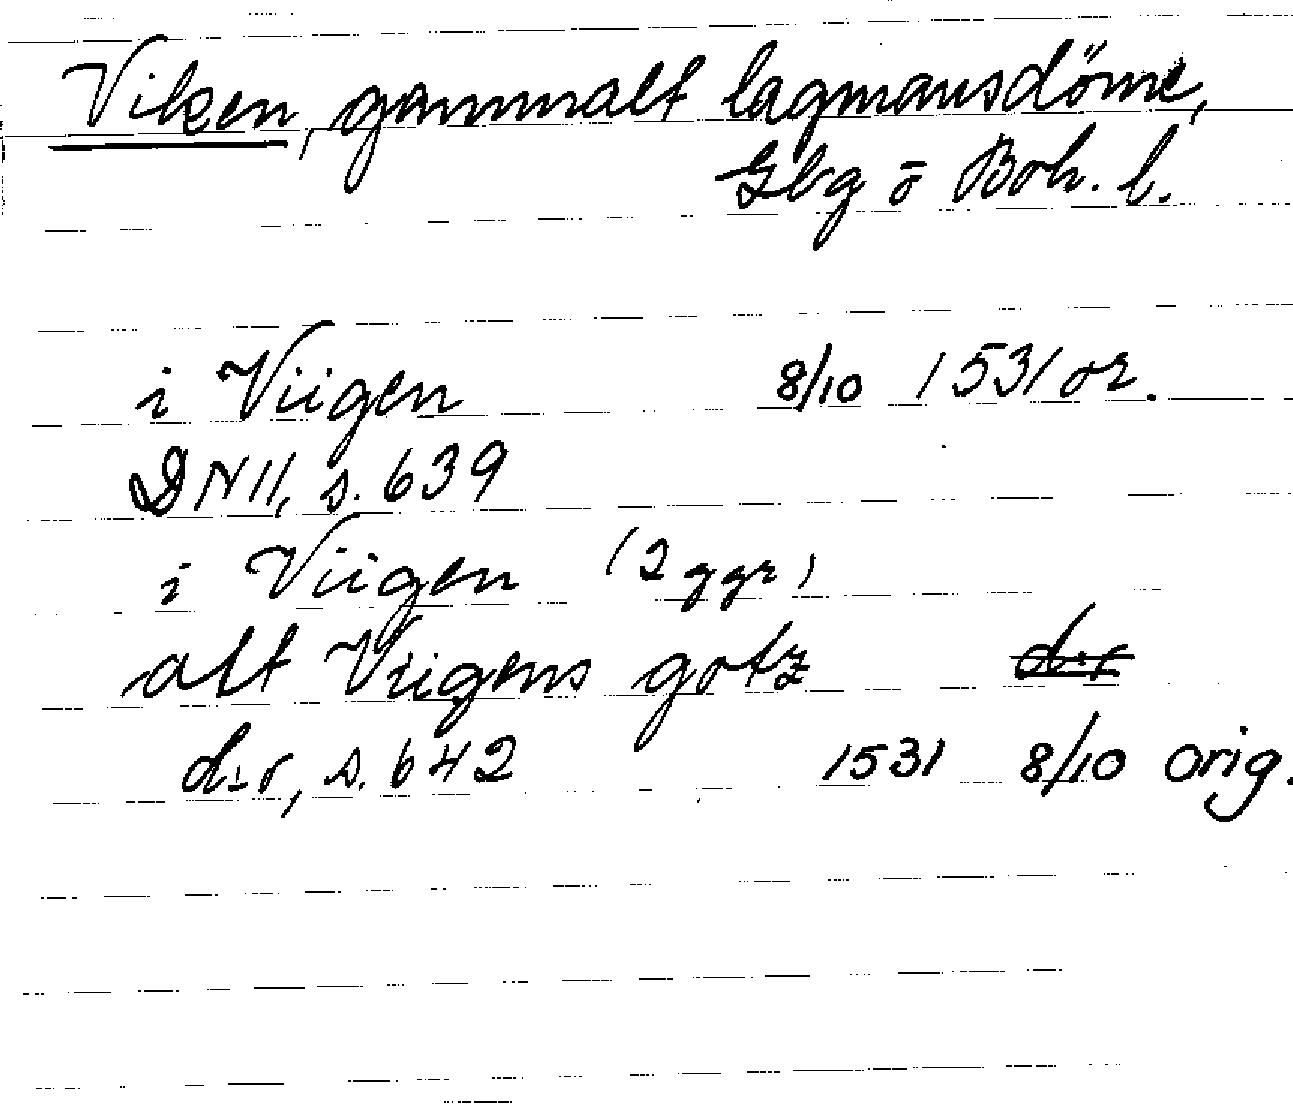 Viken, gammalt lagmansdöme,
Gbg o Boh. l.
i Viigen 8/10 1531 or.
DN II, s. 639
i Viigen (2 ggr)
alt Viigens gotz d:o
d:o, s. 642 1531 8/10 orig.